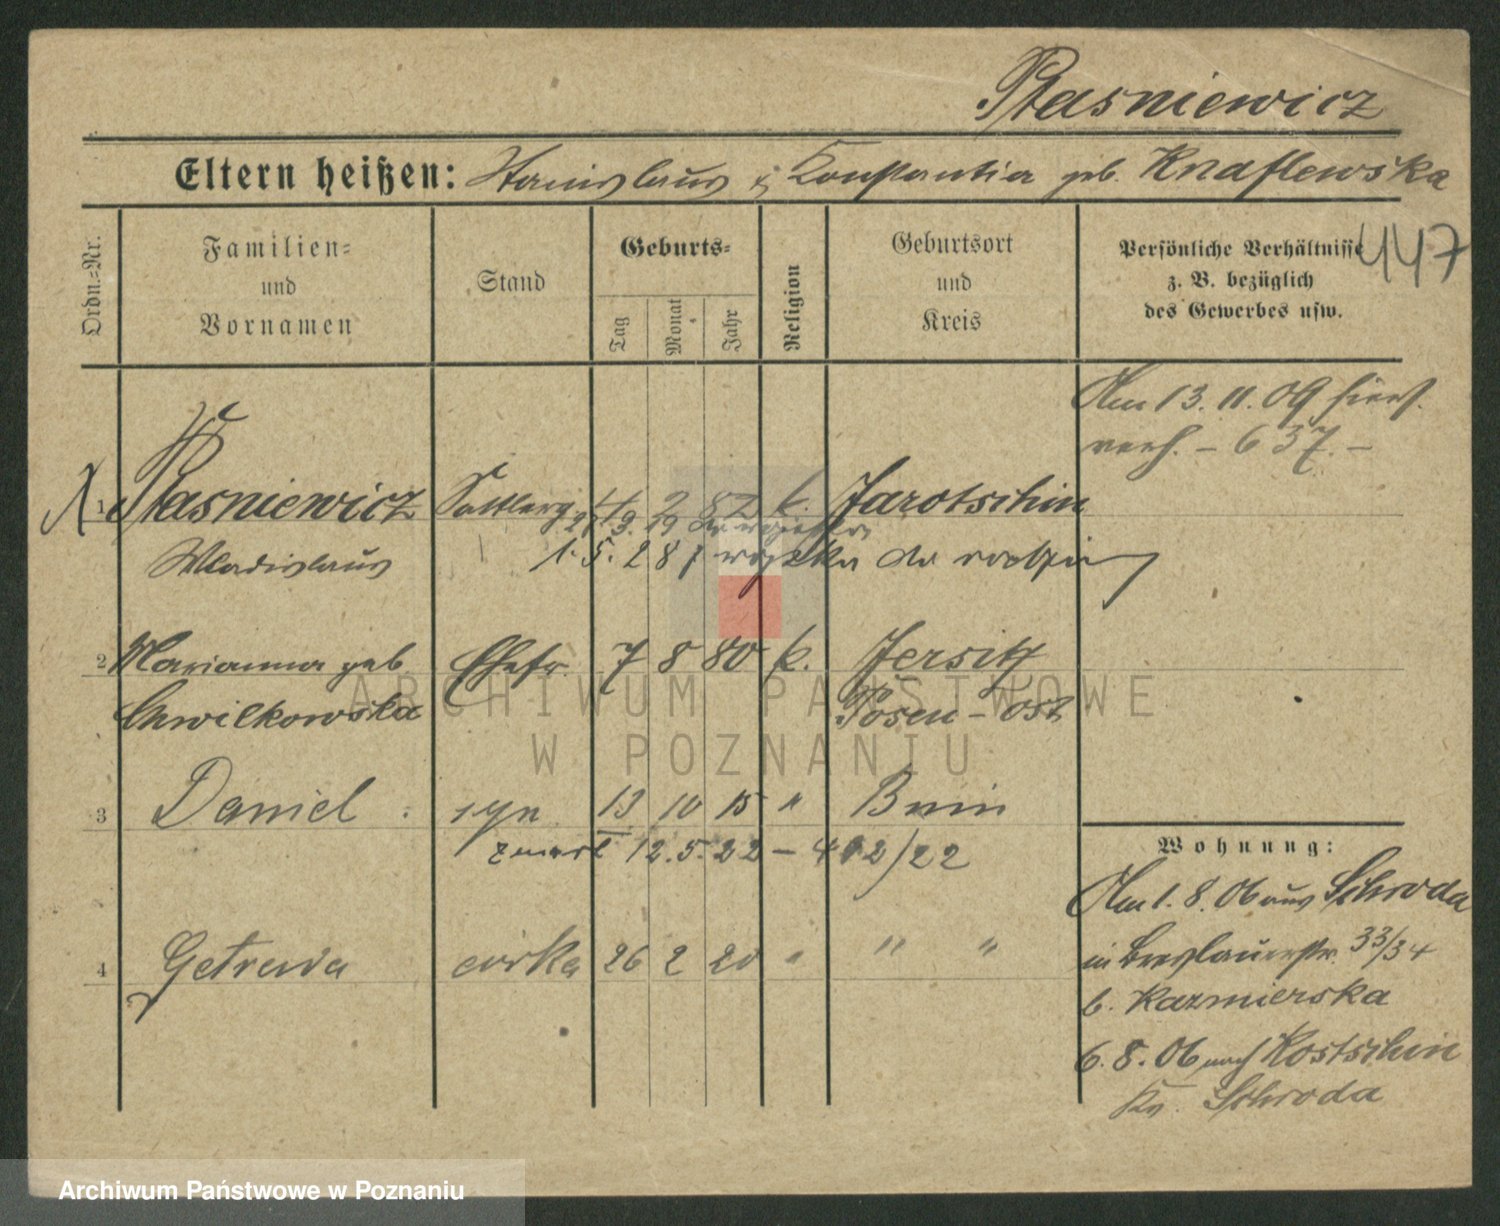 Ptasniewicz
Eltern heißen: Stanislaus & Konstantia geb. Knaflewska
447
Ordn.-Nr.
Familien-
und
Vornamen
Stand
Geburts-
Tag
Monat
Jahr
Religion
Geburtsort
und
Kreis
Persönliche Verhältnisse
z. B. bezüglich
des Gewerbes usw.
Am 13.11.09 hiers.
verh. – 637. –
1 Ptasniewicz Sattlerg 4 2 82 k. Jarotschin
Wladislaus
2 Marianna geb. Ehefr. 7 8 80 k. Jersitz
Chwilkowska Posen-Ost
3 Daniel syn 13 10 15 " Bnin
zmarł 12.5.22 – 492/22
4 Getruda córka 26 2 20 " " "
Wohnung:
Am 1. 8. 06 aus Schroda
in Breslauerstr. 33/34
b. Kazmierska
6. 8. 06 nach Kostschin
Kr. Schroda
ARCHIWUM PAŃSTWOWE
W POZNANIU
Archiwum Państwowe w Poznaniu